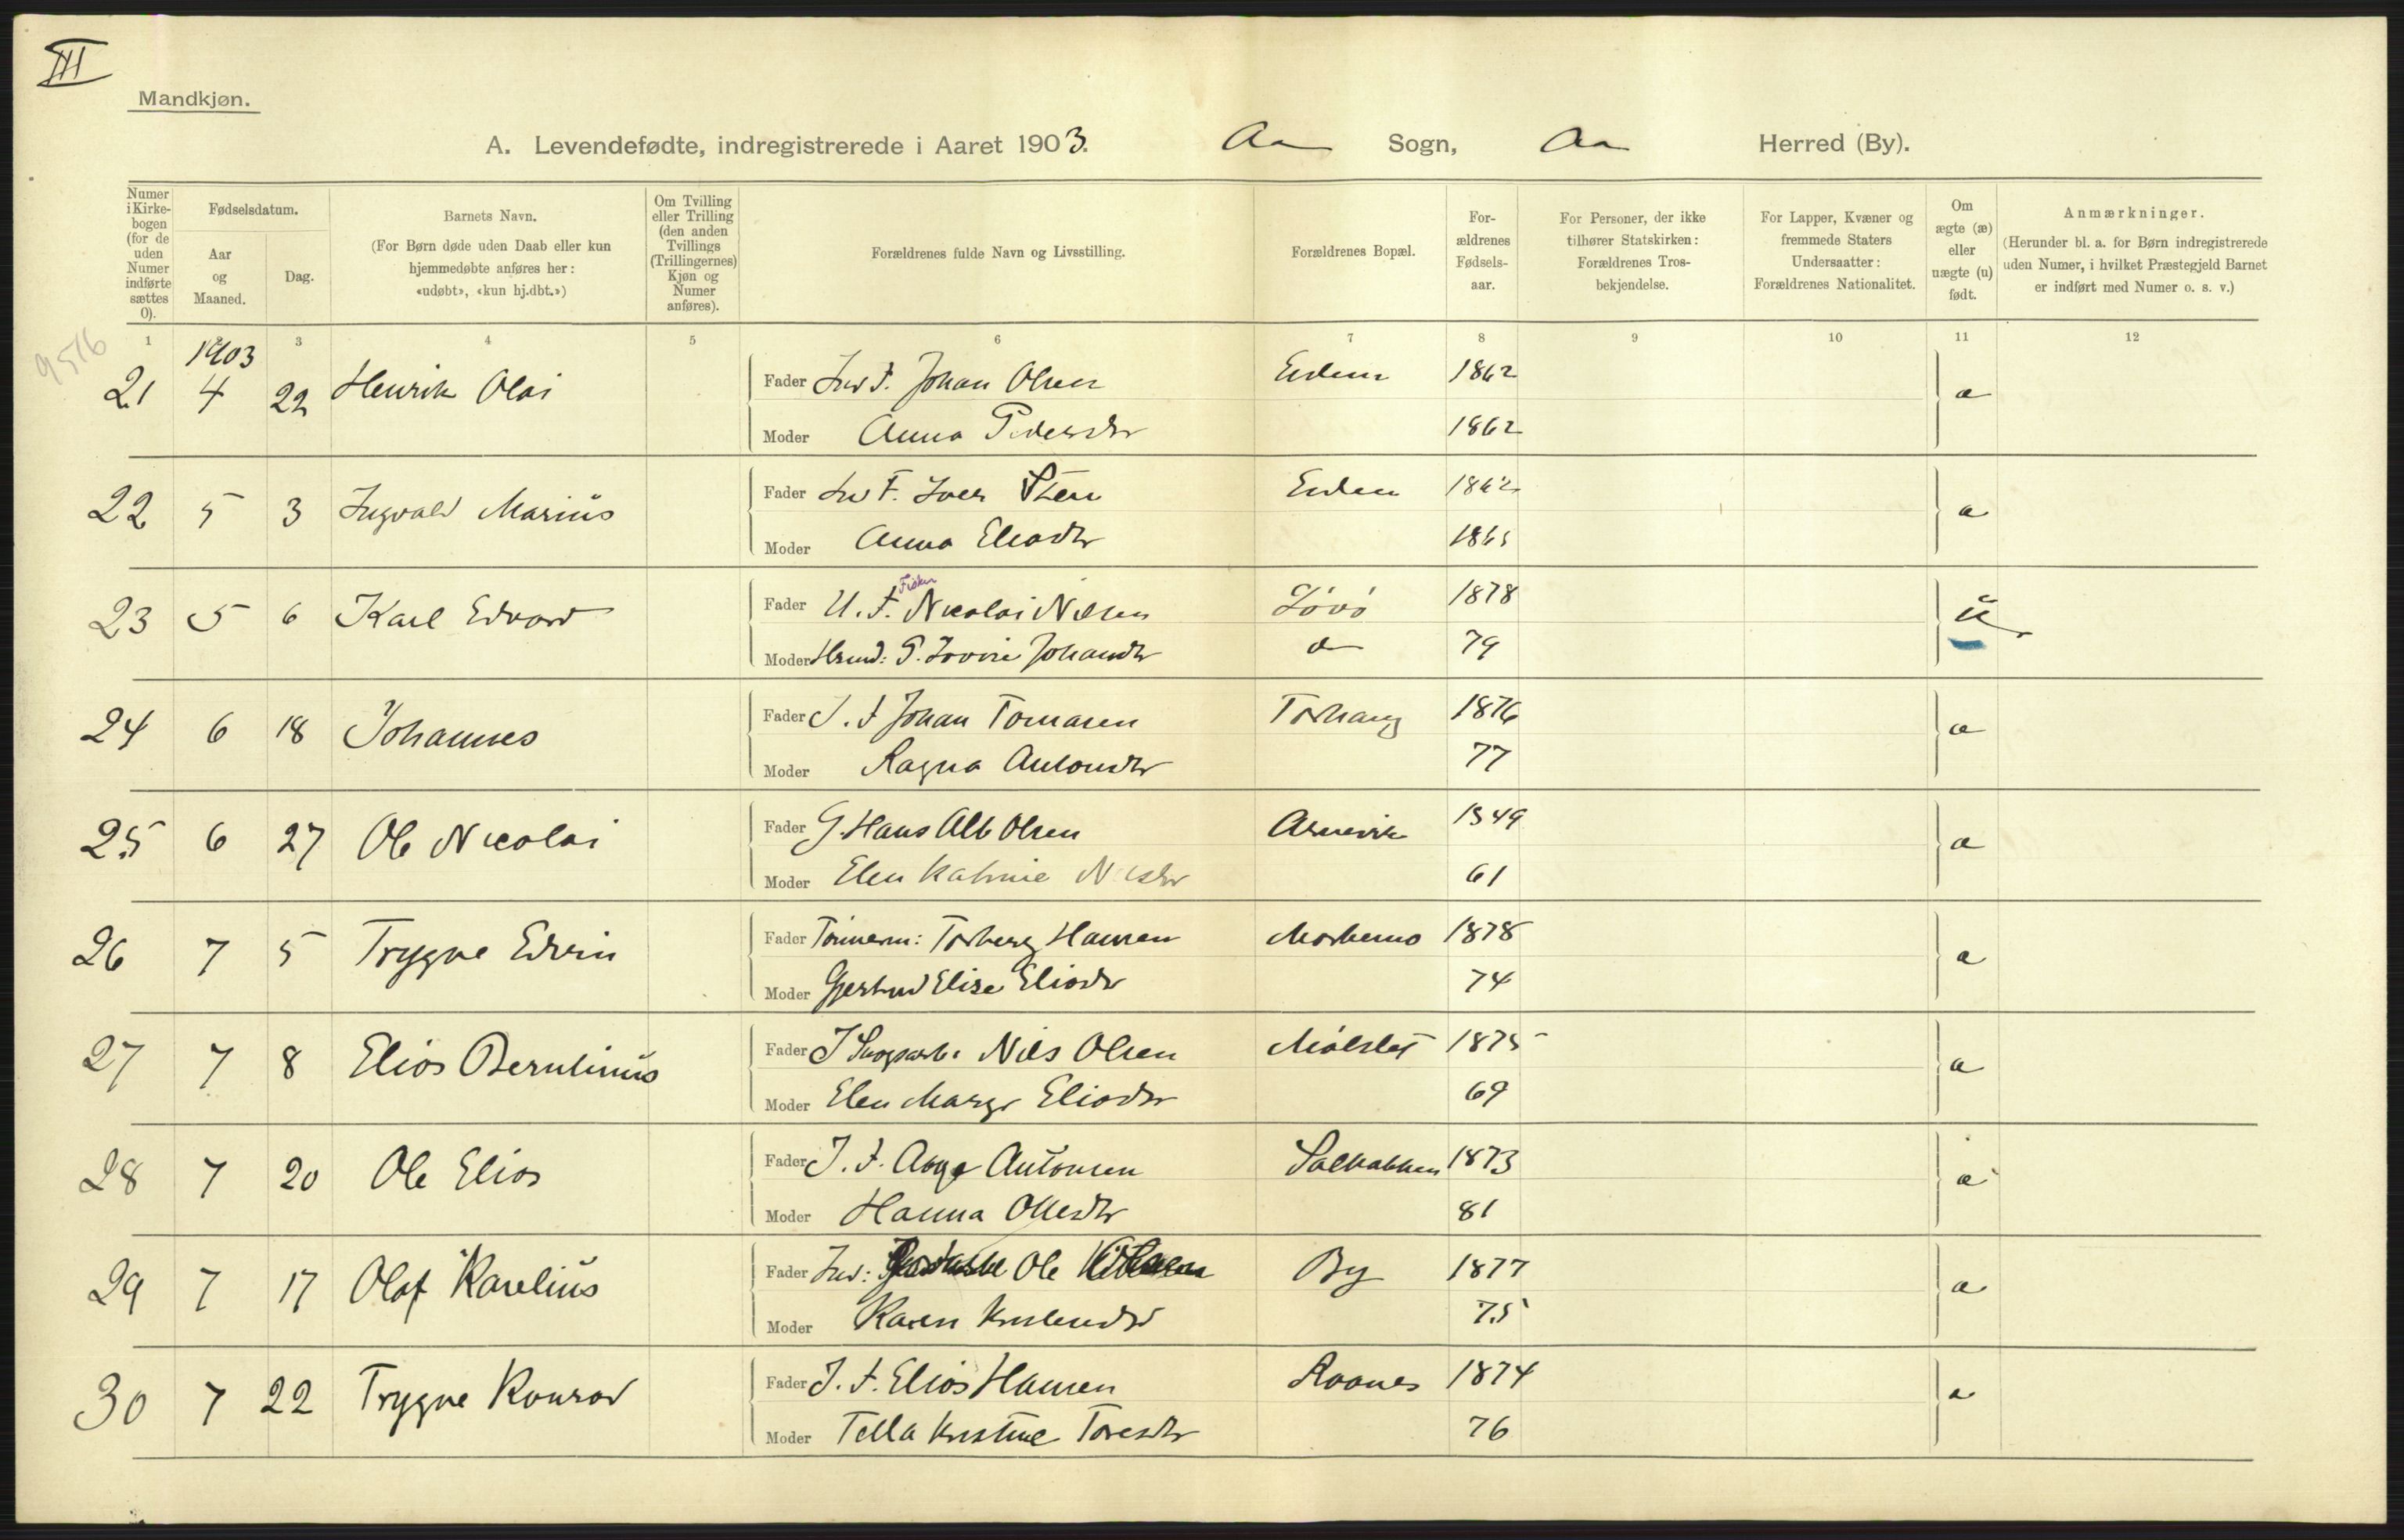 III
Mandkjøn.
A. Levendefødte, indregistrerede i Aaret 1903. Aa Sogn, Aa Herred (By).
Numer i Kirke-bogen (for de uden Numer indførte sættes 0).
Fødselsdatum.
Aar og Maaned.
Dag.
Barnets Navn.
(For Børn døde uden Daab eller kun hjemmedøbte anføres her: «udøbt», «kun hj.dbt.»)
Om Tvilling eller Trilling (den anden Tvillings (Trillingernes) Kjøn og Numer anføres).
Forældrenes fulde Navn og Livsstilling.
Forældrenes Bopæl.
For-ældrenes Fødsels-aar.
For Personer, der ikke tilhører Statskirken: Forældrenes Tros-bekjendelse.
For Lapper, Kvæner og fremmede Staters Undersaatter: Forældrenes Nationalitet.
Om ægte (æ) eller uægte (u) født.
Anmærkninger.
(Herunder bl. a. for Børn indregistrerede uden Numer, i hvilket Præstegjeld Barnet er indført med Numer o. s. v.)
1 3 4 5 6 7 8 9 10 11 12
9516
1903
21 4 22 Henrik Olai Fader Ind F. Johan Olsen 1862 æ
Moder Anna Pedersdtr 1862
22 5 3 Ingvald Marius Fader Ind F. Iver 1862 æ
Moder Anna Eliasdtr 1865
Fisker
23 5 6 Karl Edvard Fader U. F. Nicolai Nilsen Løvø 1878 u
Moder P. Johansdtr d 79
24 6 18 Johannes Fader I. F Johan Tomasen Torhaug 1876 æ
Moder Ragna Antonsdtr 77
25 6 27 Ole Nicolai Fader G. Hans Alb Olsen 1849 æ
Moder Elen Katrine 61
26 7 5 Trygve Edvin Fader Tømerm: Torberg Hansen 1878 æ
Moder Gjertrud Elise Eliasdr 74
27 7 8 Elias Berntinus Fader I Nils Olsen 1875 æ
Moder Elen Margr Eliasdr 69
28 7 20 Ole Elias Fader I. F. Aage Antonsen Salbakken 1873 æ
Moder Hanna Olesdtr 81
29 7 17 Olaf Karelius Fader Ind: Ole By 1877 æ
Moder Karen 75
30 7 22 Trygve Konrad Fader I. F. Elias Hansen Roones 1874 æ
Moder Tella Kristine Toresdtr 76